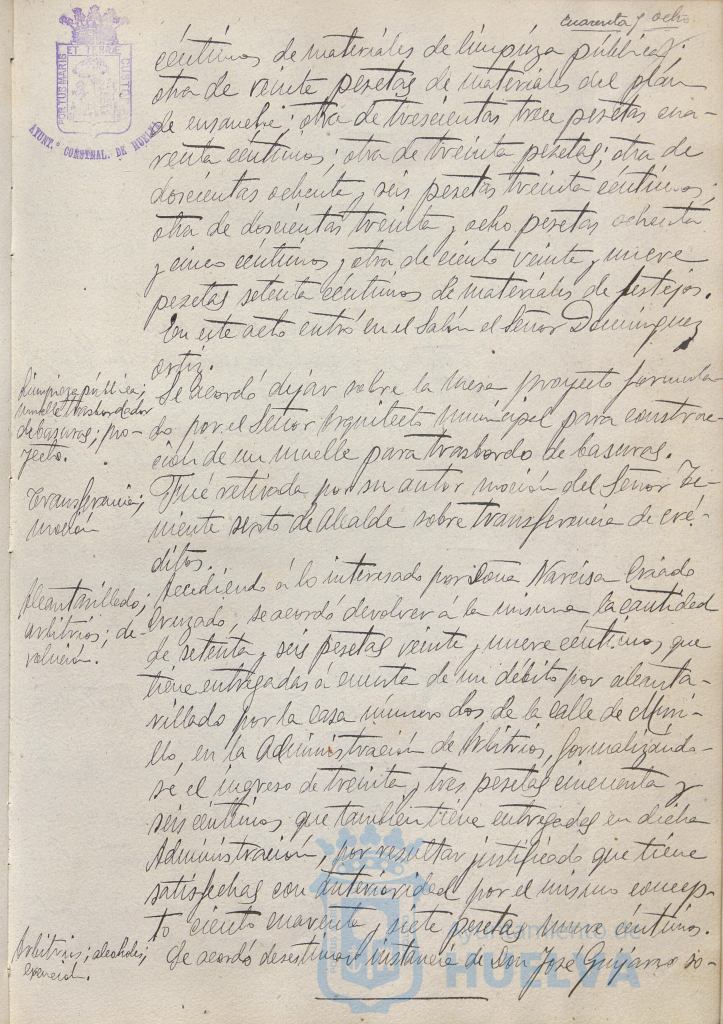 Cuarenta y ocho
PORTUS MARIS ET TERRÆ CUSTODIA
AYUNT.º CONSTNAL. DE HUELVA
céntimos de materiales de limpieza pública;
otra de veinte pesetas de materiales del plan
de ensanche; otra de trescientas trece pesetas cua-
renta céntimos; otra de treinta pesetas; otra de
doscientas ochenta y seis pesetas treinta céntimos;
otra de doscientas treinta y ocho pesetas ochenta
y cinco céntimos y otra de ciento veinte y nueve
pesetas setenta céntimos de materiales de festejos.
En este acto entró en el Salón el Señor Dominguez
Ortiz.
Limpieza pública;
muelle trasbordador
de basuras; pro-
yecto.
Se acordó dejar sobre la mesa proyecto formula-
do por el Señor Arquitecto Municipal para construc-
ción de un muelle para trasbordo de basuras.
Transferencia;
moción
Fué retirada por su autor moción del Señor Te-
niente sexto de Alcalde sobre transferencia de cré-
ditos.
Alcantarillado;
arbitrios; de-
volución.
Accediendo á lo interesado por Doña Narcisa Criado
Cruzado, se acordó devolver á la misma la cantidad
de setenta y seis pesetas veinte y nueve céntimos que
tiene entregadas á cuenta de un débito por alcanta-
rillado por la casa número dos de la calle de Muri-
llo, en la Administración de Arbitrios, formalizándo-
se el ingreso de treinta y tres pesetas cincuenta y
seis céntimos que también tiene entregadas en dicha
Administración, por resultar justificado que tiene
satisfechas con anterioridad por el mismo concep-
to ciento cuarenta y siete pesetas nueve céntimos.
Arbitrios; alcoholes;
exención.
Se acordó desestimar instancia de Don José Guijarro so-
Ayuntamiento de
HUELVA